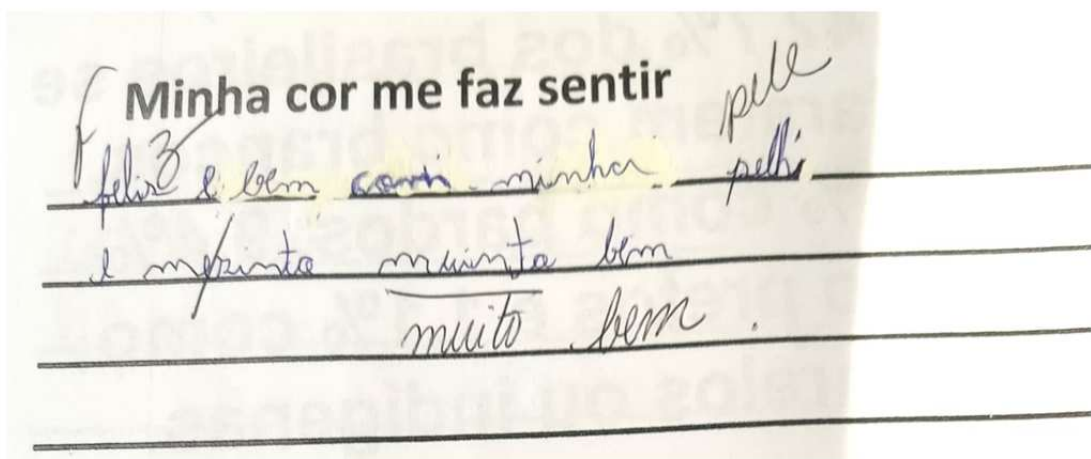 Minha cor me faz sentir
pele
feliz e bem com minha pelhi
e mezinto muinto bem
muito bem.